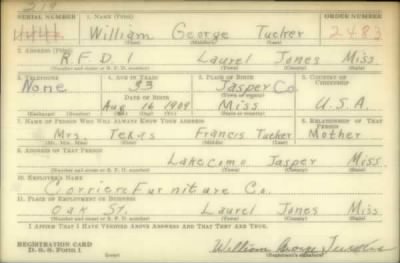 219
SERIAL NUMBER 1. NAME (Print) ORDER NUMBER
William George Tucker 2483
(First) (Middle) (Last)
2. ADDRESS (Print)
R.F.D. 1 Laurel Jones Miss.
(Number and street or R. F. D. number) (Town) (County) (State)
3. TELEPHONE 4. AGE IN YEARS 5. PLACE OF BIRTH 6. COUNTRY OF CITIZENSHIP
None 33 Jasper Co.
DATE OF BIRTH (Town or county)
Aug 16 1909 Miss U.S.A.
(Exchange) (Number) (Mo.) (Day) (Yr.) (State or country)
7. NAME OF PERSON WHO WILL ALWAYS KNOW YOUR ADDRESS 8. RELATIONSHIP OF THAT PERSON
Mrs. Texas Francis Tucker Mother
(Mr., Mrs., Miss) (First) (Middle) (Last)
9. ADDRESS OF THAT PERSON
Lakecomo Jasper Miss.
(Number and street or R. F. D. number) (Town) (County) (State)
10. EMPLOYER'S NAME
Corriere Furniture Co.
11. PLACE OF EMPLOYMENT OR BUSINESS
Oak St. Laurel Jones Miss.
(Number and street or R. F. D. number) (Town) (County) (State)
I AFFIRM THAT I HAVE VERIFIED ABOVE ANSWERS AND THAT THEY ARE TRUE.
REGISTRATION CARD
D. S. S. Form 1 (over) William George Tucker
(Registrant's signature)